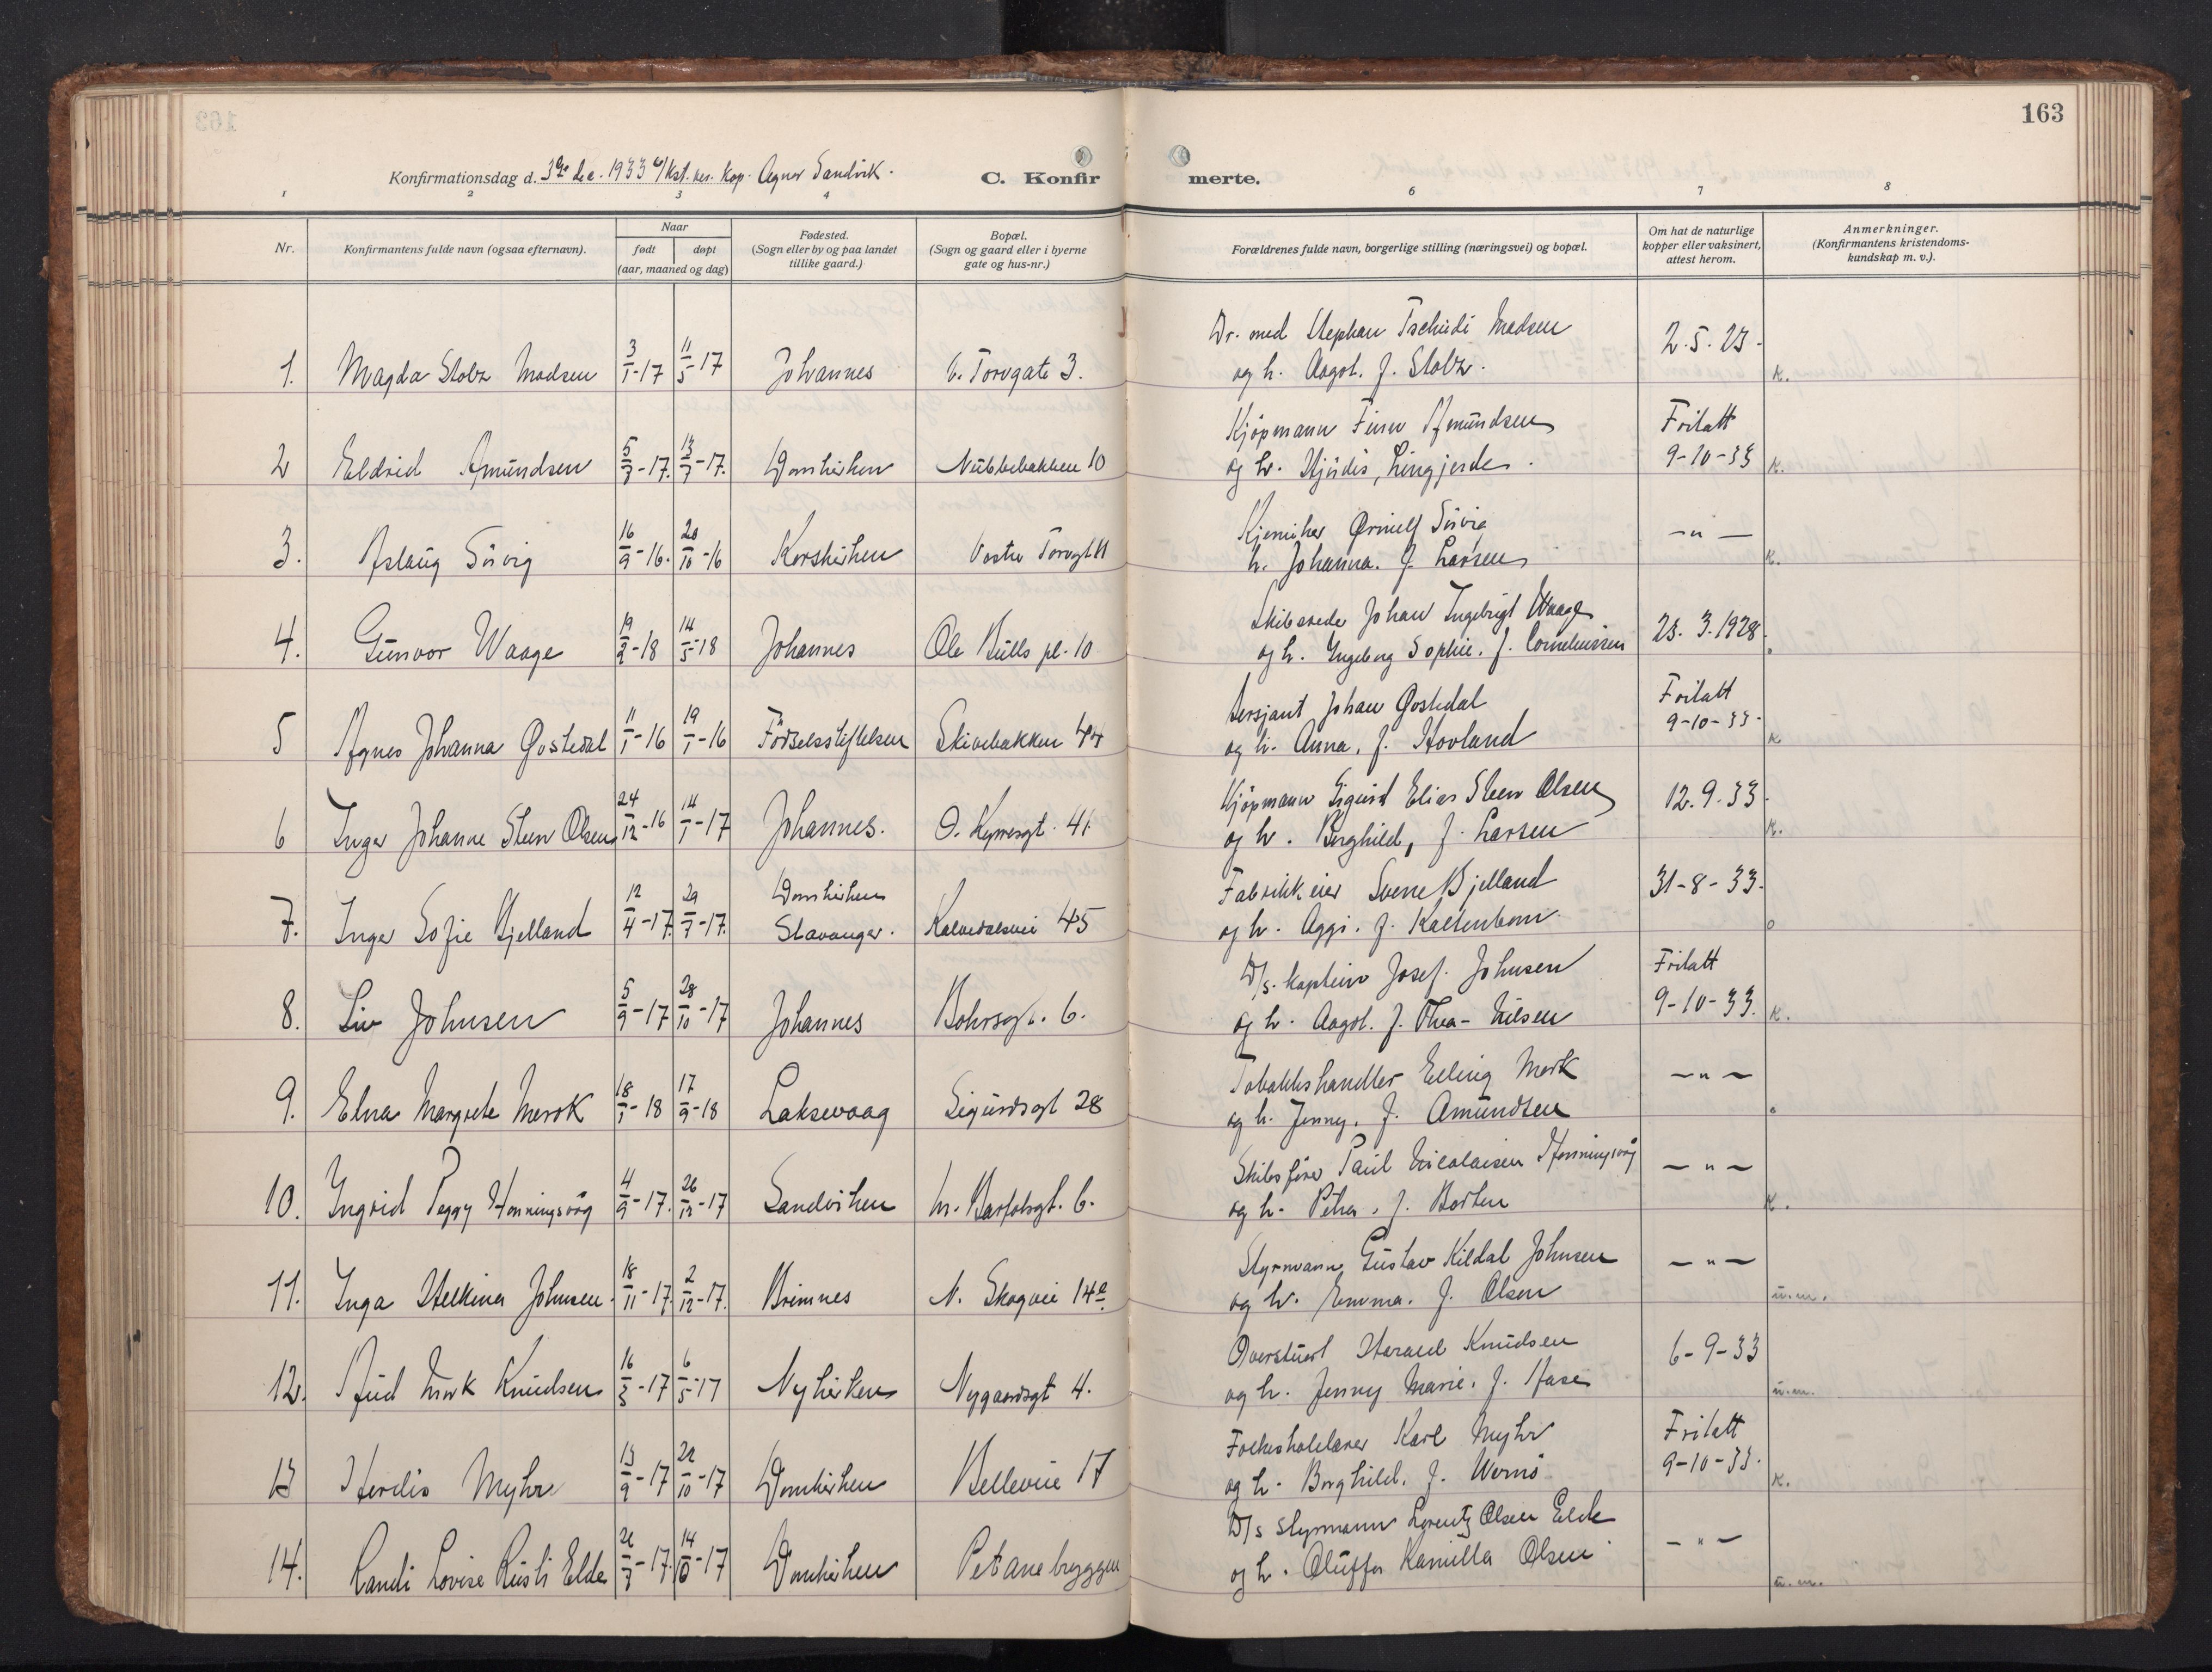 163
Konfirmationsdag d. 3die dec. 1933 v/kst. res. kap. Agnar Sandvik.
C. Konfirmerte.
1 2 3 4 6 7 8
Nr. Konfirmantens fulde navn (ogsaa efternavn). Naar født døpt (aar, maaned og dag) Fødested. (Sogn eller by og paa landet tillike gaard.) Bopæl. (Sogn og gaard eller i byerne gate og hus-nr.) Forældrenes fulde navn, borgerlige stilling (næringsvei) og bopæl. Om hat de naturlige kopper eller vaksinert, attest herom. Anmerkninger. (Konfirmantens kristendoms-kundskap m. v.).
Dr. med Stephan Tschudi Madsen 2.5.23.
1. Magda Stolz Madsen 3/1-17 11/5-17 Johannes V. Torvgate 3. og h. Aagot. f. Stolz. K.
Kjöpmann Finn Amundsen Fritatt
2 Eldrid Amundsen 5/7-17. 13/7-17. Domkirken Nubbebakken 10 og h. Hjördis, Lingjerde. 9-10-33 K.
Kjemiker Ørnulf Sörvig -"-
3. Aslaug Sörvig 16/9-16. 20/10-16 Korskirken Vestre Torvgt 11 h. Johanna. f. Larsen K.
Johan Ingebrigt Waage 23.3.1928.
4. Gunvor Waage 19/2-18 14/5-18 Johannes Ole Bulls pl. 10 og h. Ingeborg Sophie. f. Corneliussen o
Sersjant Johan Gostedal Fritatt
5 Agnes Johanna Gostedal 11/1-16 19/1-16 Födselsstiftelsen Skivebakken 44 og h. Anna, f. Hovland 9-10-33. K
Kjöpmann Sigurd Elias Steen Olsen 12.9.33.
6 Inger Johanne Steen Olsen 24/12-16 14/1-17 Johannes. O. Kyrresgt. 41. og h. Borghild, f. Larsen K.
Fabrikkeier Sverre Bjelland 31-8-33.
7. Inger Sofie Bjelland 12/4-17. 29/7-17. Domkirken Stavanger. Kalvedalsvei 45 og h. Aggi. f. Kaltenborn. o
D/s. kaptein Josef. Johnsen Fritatt
8. Liv Johnsen 5/9-17 28/10-17 Johannes Bohrsgt. 6. og h. Aagot. f. Thea-Nilsen 9-10-33. K.
Tobakkshandler Elling Merk -"-
9. Elna Margrete Merok 18/1-18 17/9-18 Laksevaag Sigurdsgt 28 og h. Jenny. f. Amundsen o
Skibsförer Paul Nicolaisen Honningsvåg -"-
10. Ingrid Peggy Honningsvåg 4/9-17. 26/12-17 Sandviken Hr. gt. 6. og h. Petra. f. Borten K.
Styrmann Gustav Kildal Johnsen -"-
11. Inga Helkina Johnsen. 18/11-17. 2/12-17. Brimnes N. Skogvei 14a. og h. Emma. f. Olsen u.m.
Overstuert Harald Knudsen 6-9-33
12. Aud Mørk Knudsen 16/3-17 6/5-17 Nykirken Nygaardsgt 4. og h. Jenny Marie. f. Aase u.m.
Folkeskolelærer Karl Myhr Fritatt
13 Herdis Myhr 13/9-17 22/10-17 Domkirken Bellevue 17 og h. Borghild. f. Wernö 9-10-33. K.
D/s Styrmann Lorentz Olsen Elde -"-
14. Randi Lovise Elde 21/7-17. 14/10-17 Domkirken bryggen og h. Oluffa Kamilla Olsen u.m.